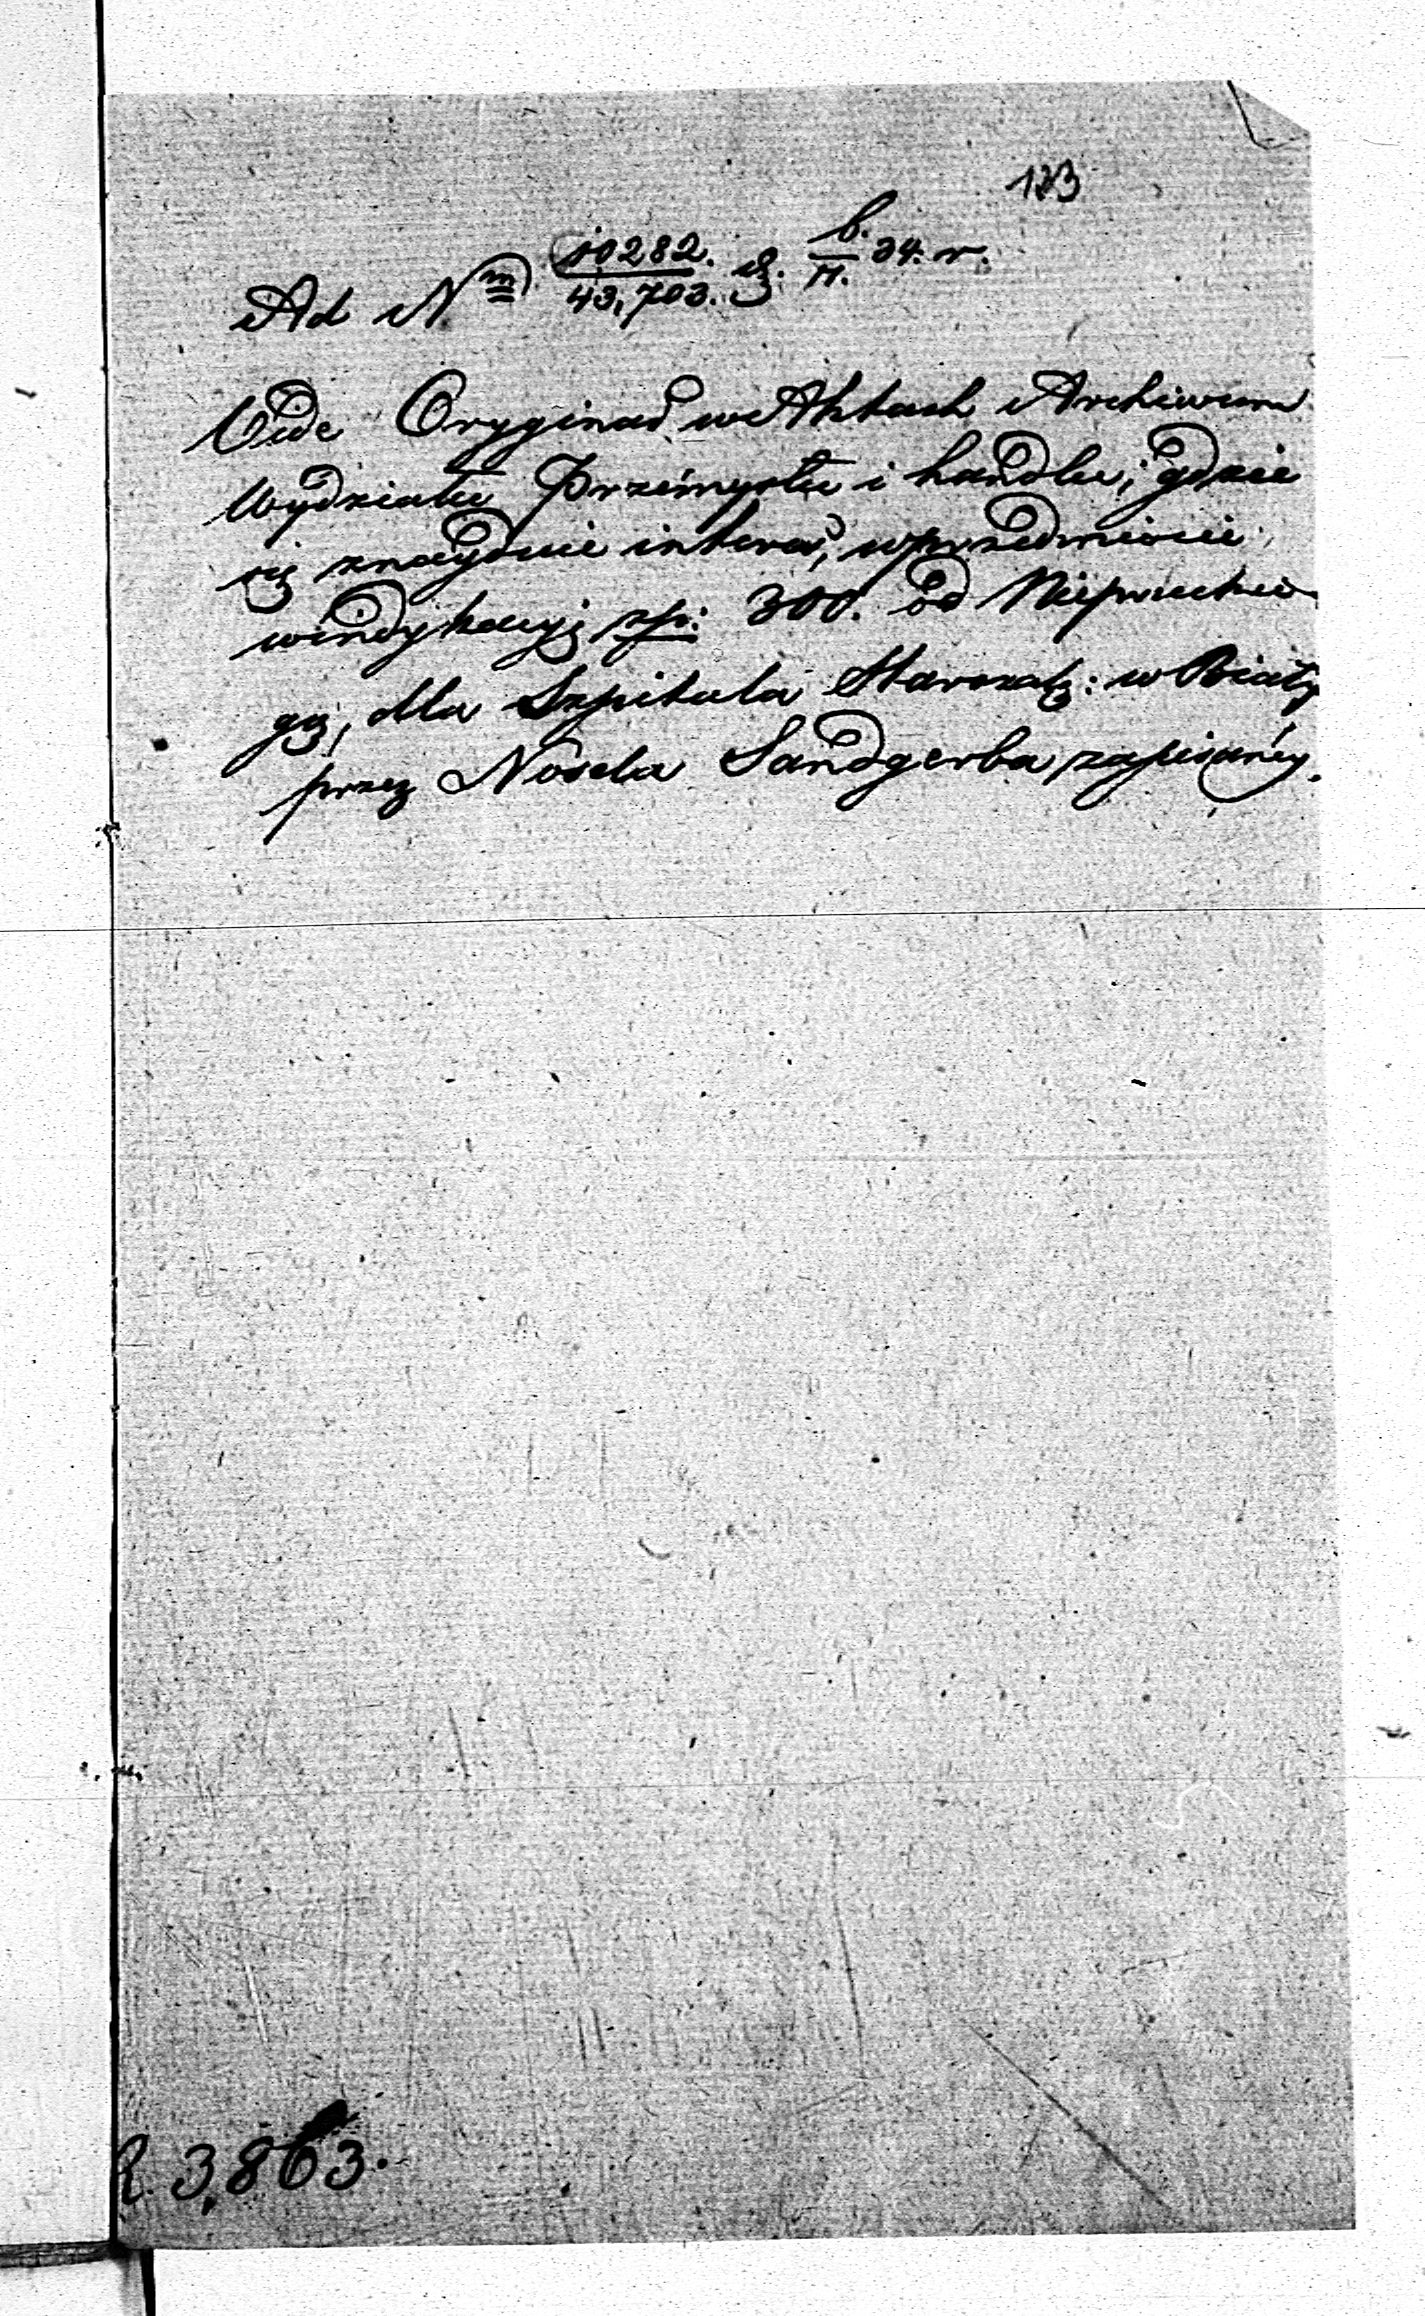 123
Ad N<sup>m</sup> 10282./43,703. b./11. 34. r.
Vide Oryginał w Aktach Archiwum
Wydziału Przemysłu i handlu, gdzie
się znayduie interes, w przedmiocie
windykacyi zp: 300. od Niepruckie
go, dla Szpitala Starozak: w Biały
przez Noseka Sandgerba zapisanéy.
3,863.